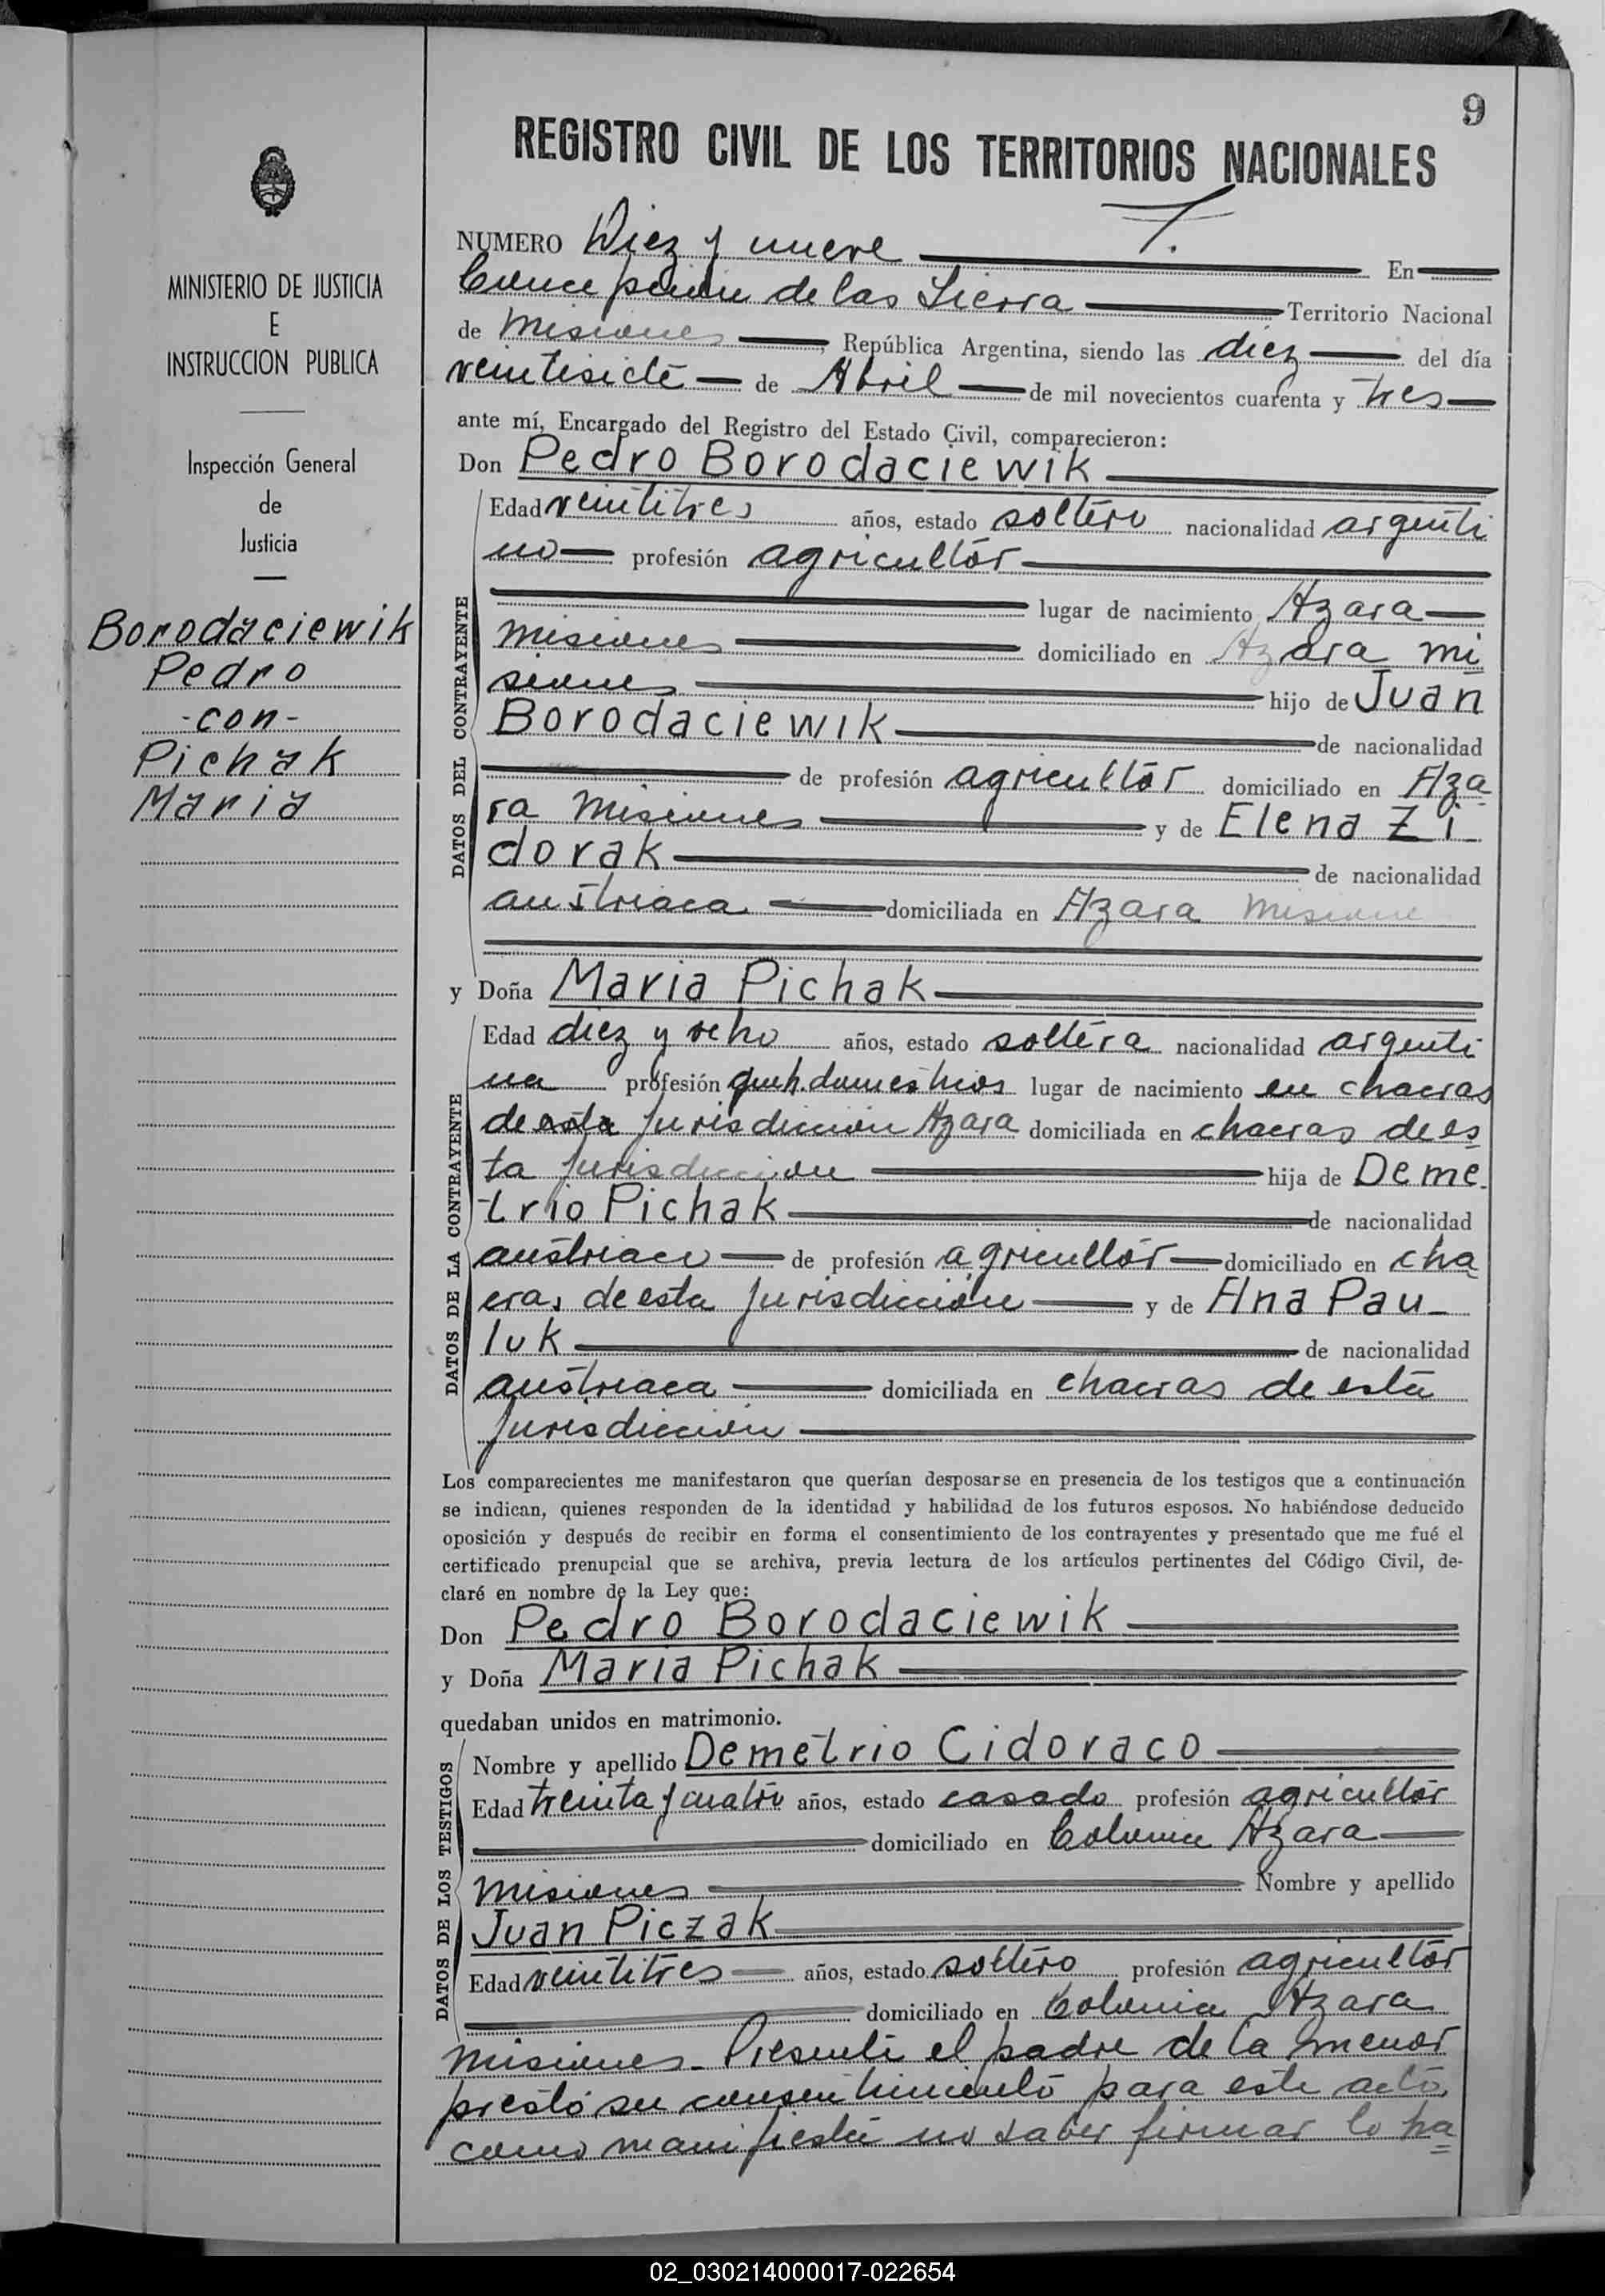 9
REGISTRO CIVIL DE LOS TERRITORIOS NACIONALES
MINISTERIO DE JUSTICIA
E
INSTRUCCION PUBLICA
Inspección General
de
Justicia
Borodaciewik
Pedro
-con-
Pichak
Maria
NUMERO Diez y nueve En
Concepción de las Sierra Territorio Nacional
de Misiones, República Argentina, siendo las diez del día
veintisiete de Abril de mil novecientos cuarenta y tres
ante mí, Encargado del Registro del Estado Civil, comparecieron:
Don Pedro Borodaciewik
DATOS DEL CONTRAYENTE
Edad veintitres años, estado soltero nacionalidad argenti
no profesión agricultor
lugar de nacimiento Azara
Misiones domiciliado en Azara Mi
siones hijo de Juan
Borodaciewik de nacionalidad
de profesión agricultor domiciliado en Aza
ra Misiones y de Elena Zi-
dorak de nacionalidad
austriaca domiciliada en Azara Misione
y Doña Maria Pichak
DATOS DE LA CONTRAYENTE
Edad diez y ocho años, estado soltera nacionalidad argenti
na profesión queh. domesticos lugar de nacimiento en chacras
de esta jurisdiccion Azara domiciliada en chacras de es
ta jurisdiccion hija de Deme-
trio Pichak de nacionalidad
austriaco de profesión agricultor domiciliado en cha
cras de esta jurisdicción y de Ana Pau-
luk de nacionalidad
austriaca domiciliada en chacras de esta
jurisdicción
Los comparecientes me manifestaron que querían desposarse en presencia de los testigos que a continuación
se indican, quienes responden de la identidad y habilidad de los futuros esposos. No habiéndose deducido
oposición y después de recibir en forma el consentimiento de los contrayentes y presentado que me fué el
certificado prenupcial que se archiva, previa lectura de los artículos pertinentes del Código Civil, de-
claré en nombre de la Ley que:
Don Pedro Borodaciewik
y Doña Maria Pichak
quedaban unidos en matrimonio.
DATOS DE LOS TESTIGOS
Nombre y apellido Demetrio Cidoraco
Edad treinta y cuatro años, estado casado profesión agricultor
domiciliado en Colonia Azara
Misiones Nombre y apellido
Juan Piczak
Edad veintitres años, estado soltero profesión agricultor
domiciliado en Colonia Azara
Misiones- Presente el padre de la menor
prestó su consentimiento para este acto,
como manifiesta no saber firmar lo ha
02_030214000017-022654